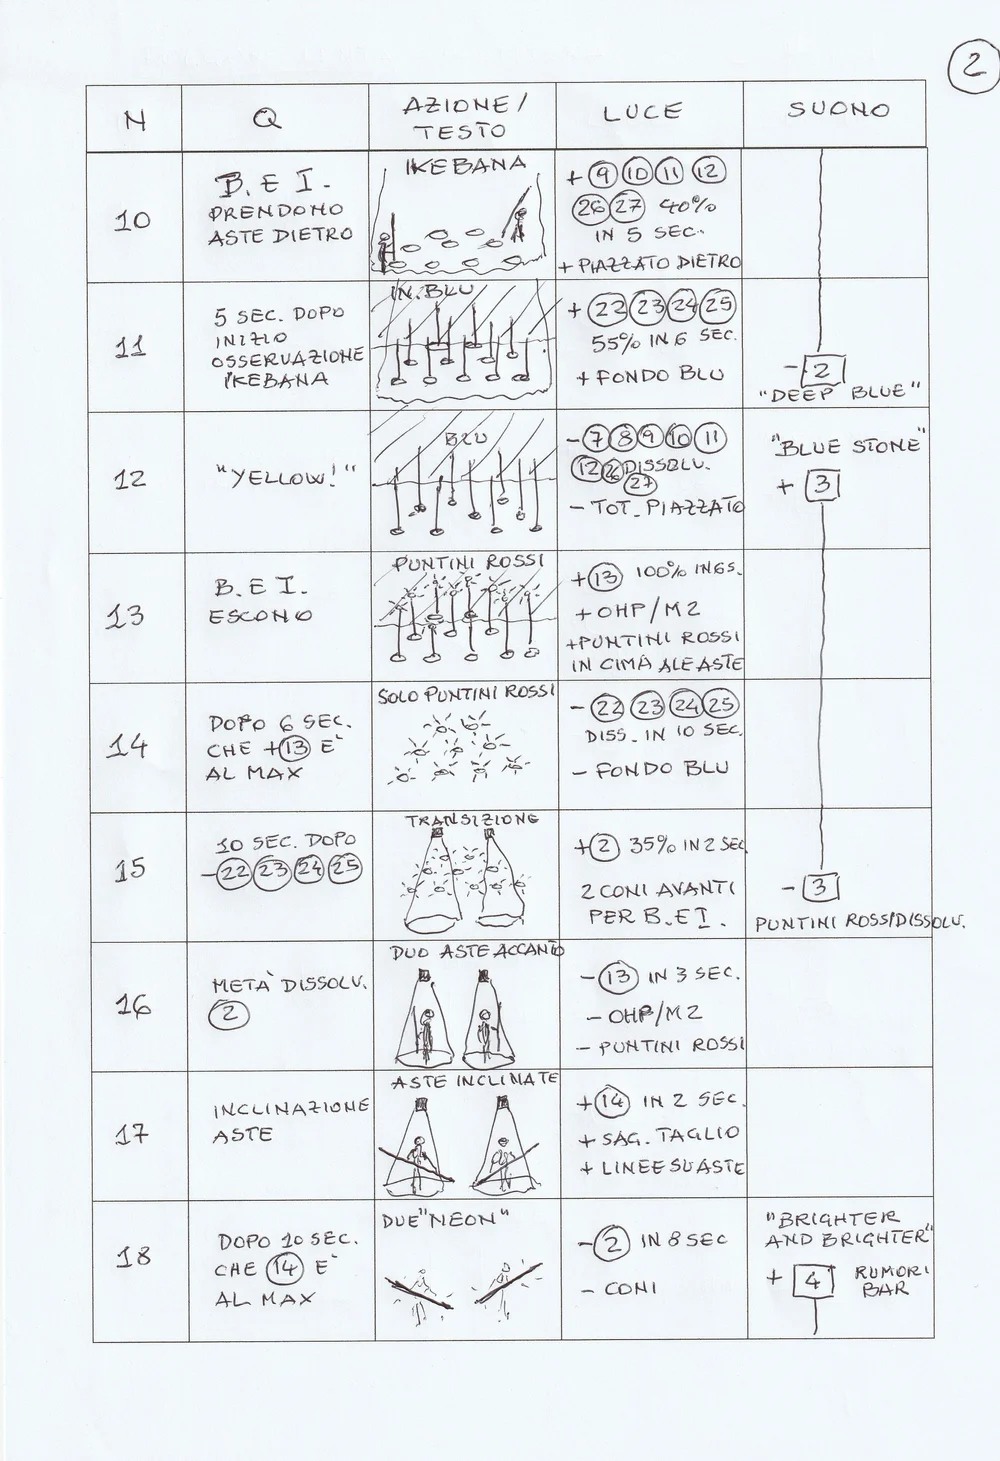 2
N
Q
AZIONE/
TESTO
LUCE
SUONO
10
B. E I.
PRENDONO
ASTE DIETRO
IKEBANA
+ 9 10 11 12
26 27 40%
IN 5 SEC.
+ PIAZZATO DIETRO
11
5 SEC. DOPO
INIZIO
OSSERVAZIONE
IKEBANA
IN BLU
+ 22 23 24 25
55% IN 6 SEC.
+ FONDO BLU
- 2
"DEEP BLUE"
12
"YELLOW!"
BLU
- 7 8 9 10 11
12 26 DISSOLV.
27
- TOT. PIAZZATO
"BLUE STONE"
+ 3
13
B. E I.
ESCONO
PUNTINI ROSSI
+ 13 100% IN 6S.
+ OHP/M2
+ PUNTINI ROSSI
IN CIMA ALE ASTE
14
DOPO 6 SEC.
CHE +13 E'
AL MAX
SOLO PUNTINI ROSSI
- 22 23 24 25
DISS. IN 10 SEC.
- FONDO BLU
15
10 SEC. DOPO
- 22 23 24 25
TRANSIZIONE
+ 2 35% IN 2 SEC
2 CONI AVANTI
PER B. E I.
- 3
PUNTINI ROSSI DISSOLV.
16
METÀ DISSOLV.
2
DUO ASTE ACCANTO
- 13 IN 3 SEC.
- OHP/M2
- PUNTINI ROSSI
17
INCLINAZIONE
ASTE
ASTE INCLINATE
+ 14 IN 2 SEC.
+ SAG. TAGLIO
+ LINEE SU ASTE
18
DOPO 10 SEC.
CHE 14 E'
AL MAX
DUE "NEON"
- 2 IN 8 SEC
- CONI
"BRIGHTER
AND BRIGHTER"
+ 4 RUMORI
BAR